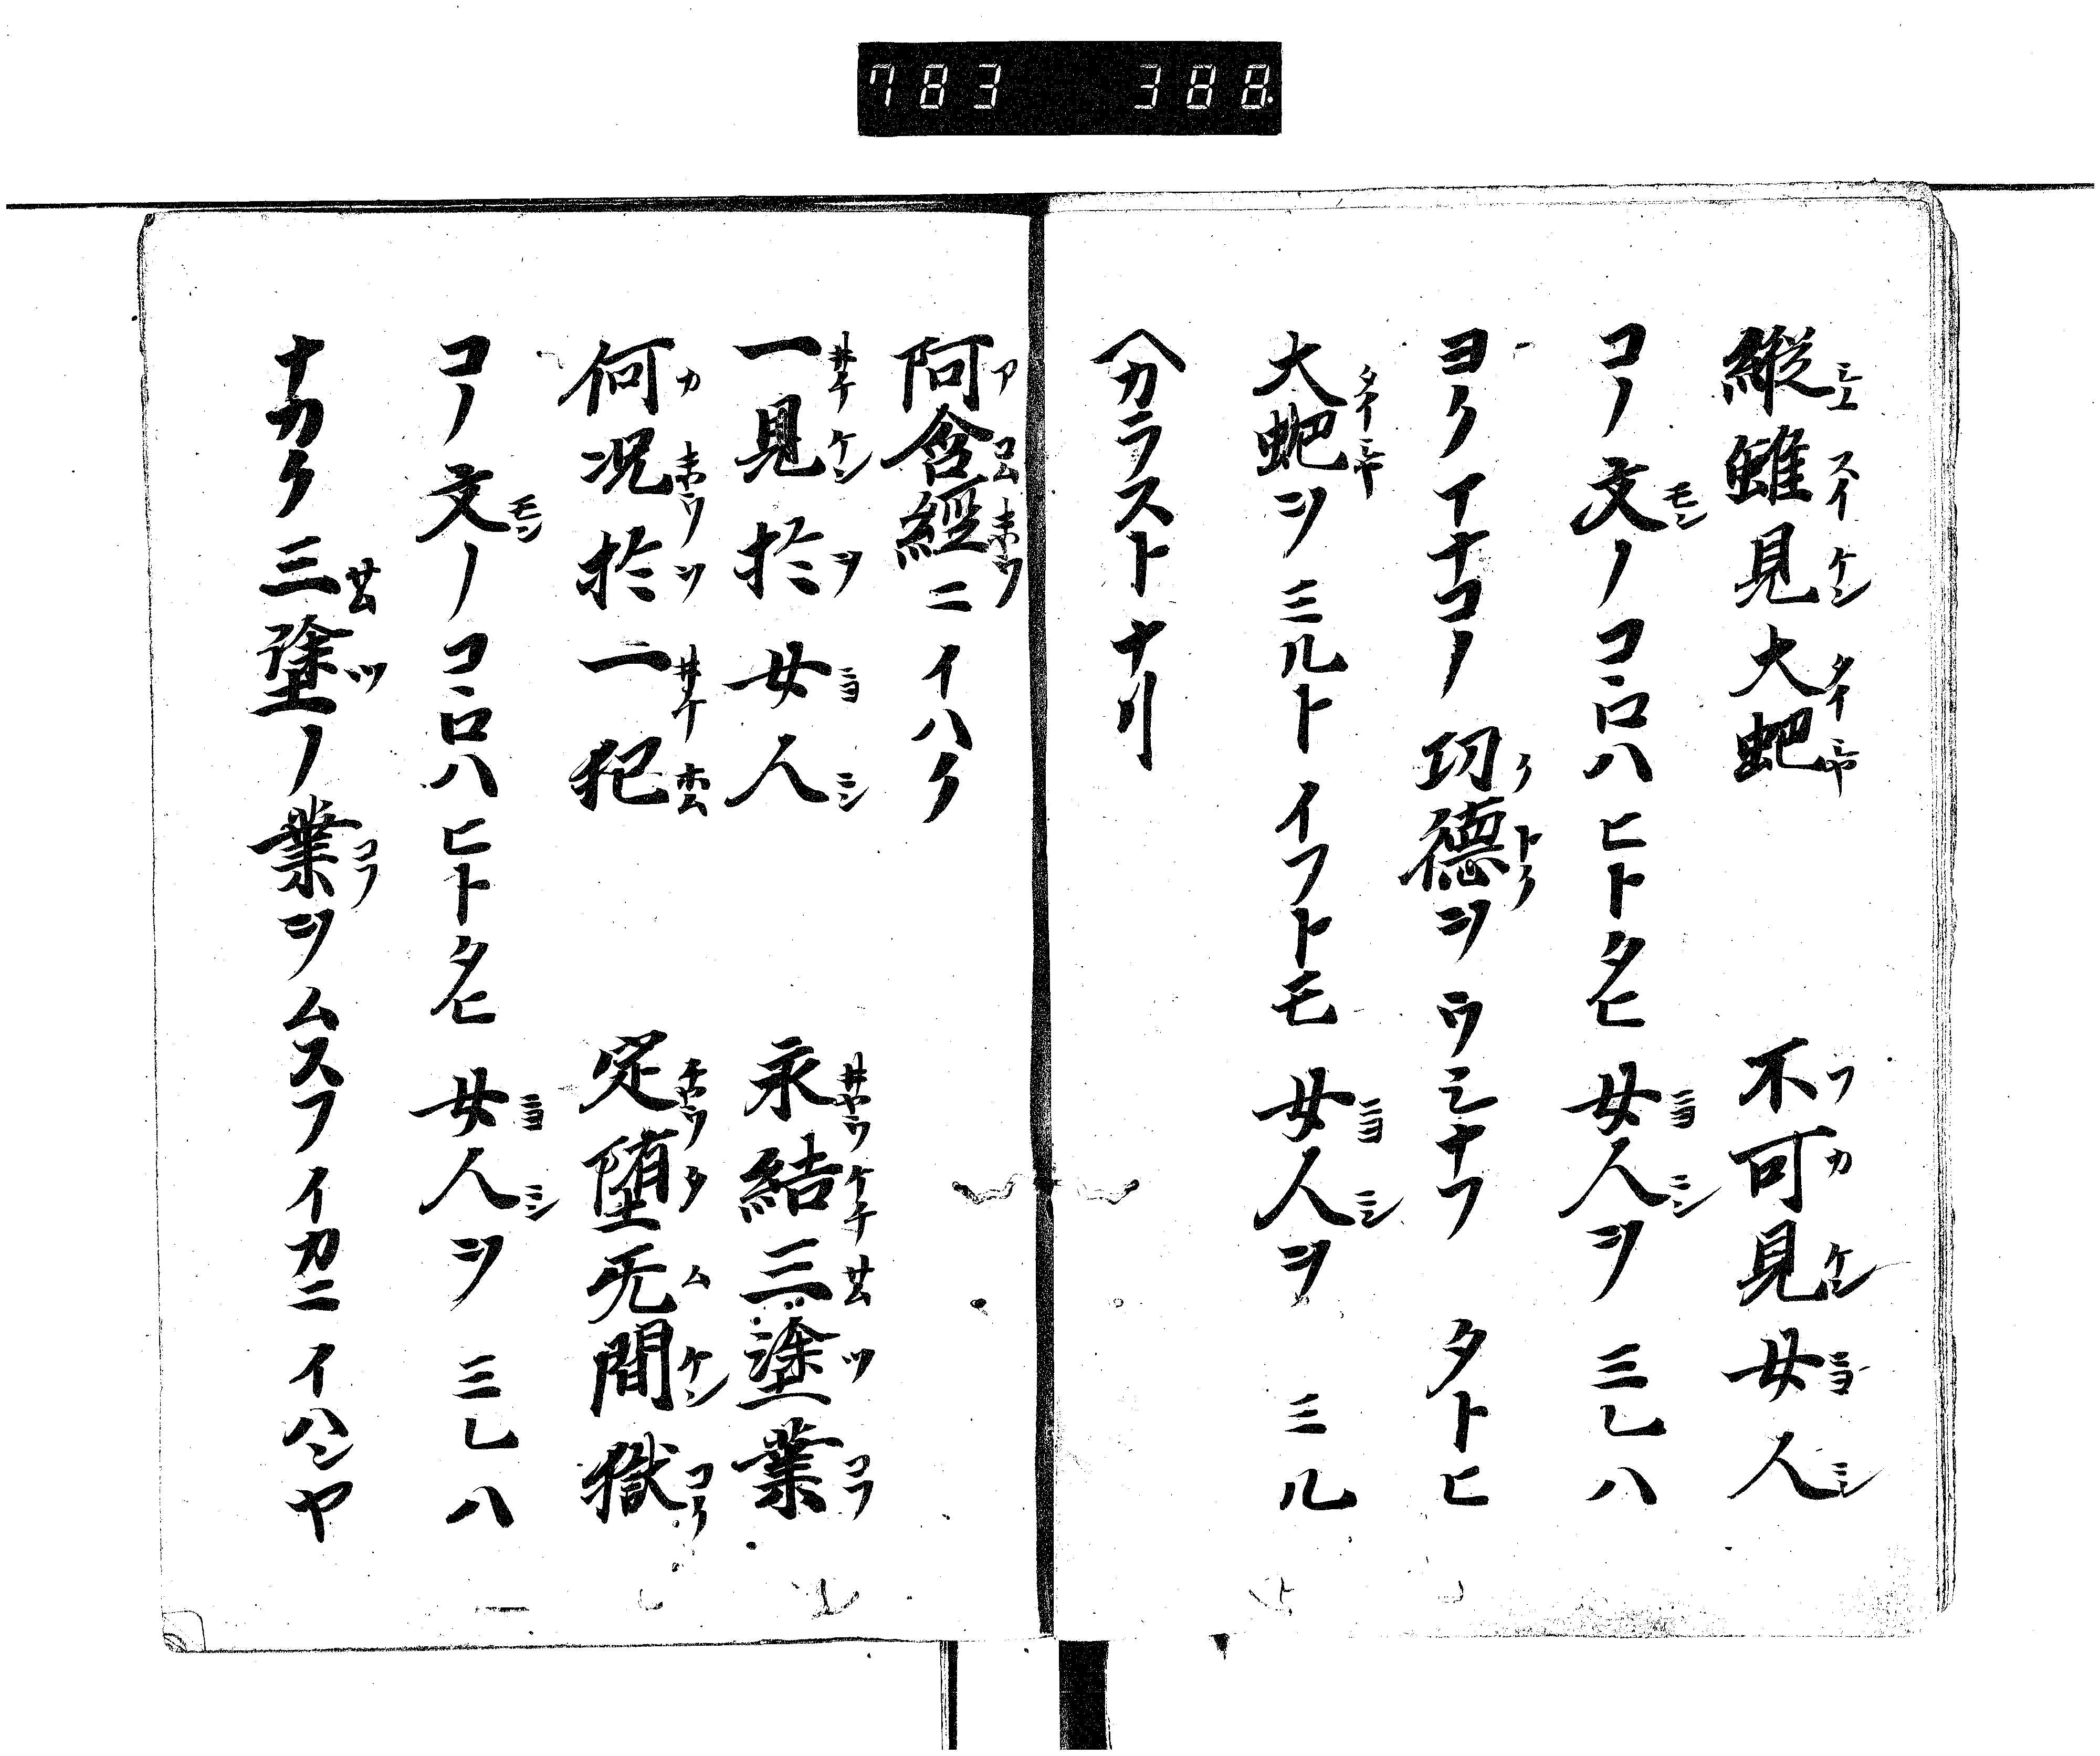 783 388
縦雖見大虵 不可見女人
コノ文ノコヽロハヒトタヒ女人ヲミレハ
ヨクマナコノ功徳ヲウシナフタトヒ
大虵ヲミルトイフトモ女人ヲミル
ヘカラストナリ
阿含經ニイハク
一見於女人 永結三塗業
何况於一犯 定堕无間獄
コノ文ノコヽロハヒトタヒ女人ヲミレハ
ナカク三塗ノ業ヲムスフイカニイハンヤ